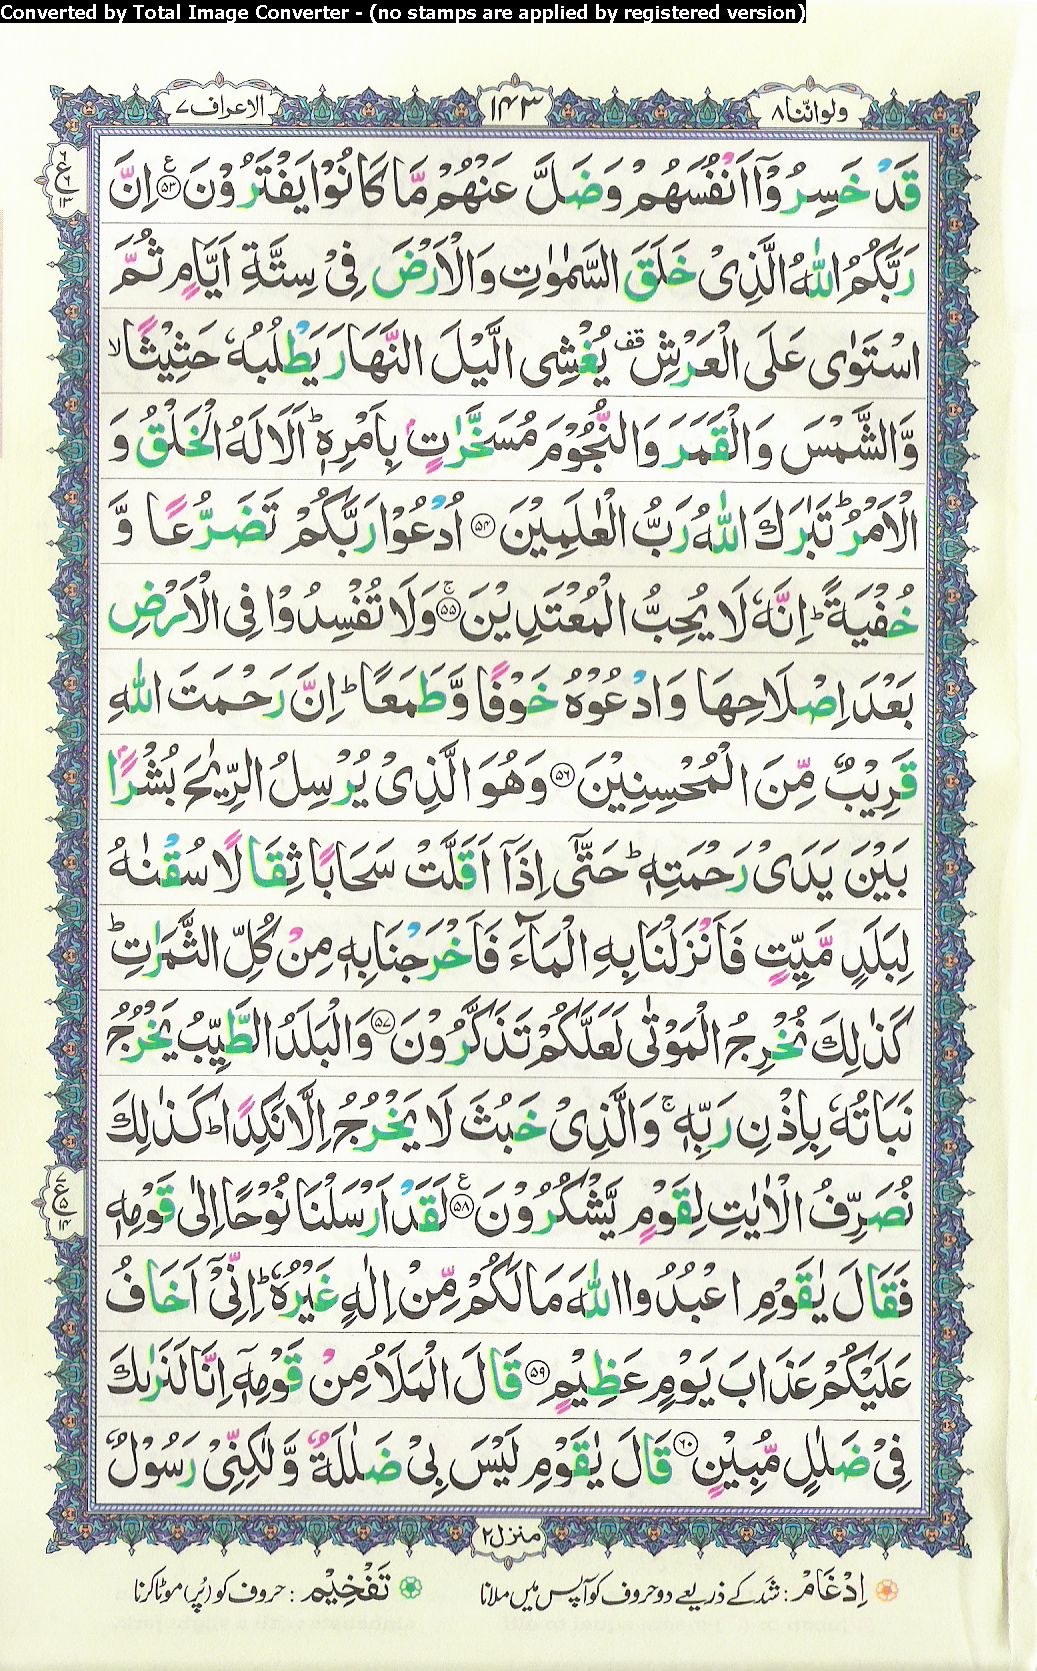 Converted by Total Image Converter - (no stamps are applied by registered version)
ولواننا ۸ ۱۴۳ الاعراف ۷
قَدْ خَسِرُوْۤا اَنْفُسَهُمْ وَضَلَّ عَنْهُمْ مَّا كَانُوْا يَفْتَرُوْنَ ۵۳ اِنَّ
رَبَّكُمُ اللّٰهُ الَّذِىْ خَلَقَ السَّمٰوٰتِ وَالْاَرْضَ فِىْ سِتَّةِ اَيَّامٍ ثُمَّ
اسْتَوٰى عَلَى الْعَرْشِ قف يُغْشِى الَّيْلَ النَّهَارَ يَطْلُبُهٗ حَثِيْثًا ۙ
وَّالشَّمْسَ وَالْقَمَرَ وَالنُّجُوْمَ مُسَخَّرٰتٍۭ بِاَمْرِهٖ ؕ اَلَا لَهُ الْخَلْقُ وَ
الْاَمْرُ ؕ تَبٰرَكَ اللّٰهُ رَبُّ الْعٰلَمِيْنَ ۵۴ اُدْعُوْا رَبَّكُمْ تَضَرُّعًا وَّ
خُفْيَةً ؕ اِنَّهٗ لَا يُحِبُّ الْمُعْتَدِيْنَ ۚ ۵۵ وَلَا تُفْسِدُوْا فِى الْاَرْضِ
بَعْدَ اِصْلَاحِهَا وَادْعُوْهُ خَوْفًا وَّطَمَعًا ؕ اِنَّ رَحْمَتَ اللّٰهِ
قَرِيْبٌ مِّنَ الْمُحْسِنِيْنَ ۵۶ وَهُوَ الَّذِىْ يُرْسِلُ الرِّيٰحَ بُشْرًۢا
بَيْنَ يَدَىْ رَحْمَتِهٖ ؕ حَتّٰۤى اِذَاۤ اَقَلَّتْ سَحَابًا ثِقَالًا سُقْنٰهُ
لِبَلَدٍ مَّيِّتٍ فَاَنْزَلْنَا بِهِ الْمَآءَ فَاَخْرَجْنَا بِهٖ مِنْ كُلِّ الثَّمَرٰتِ ؕ
كَذٰلِكَ نُخْرِجُ الْمَوْتٰى لَعَلَّكُمْ تَذَكَّرُوْنَ ۵۷ وَالْبَلَدُ الطَّيِّبُ يَخْرُجُ
نَبَاتُهٗ بِاِذْنِ رَبِّهٖ ۚ وَالَّذِىْ خَبُثَ لَا يَخْرُجُ اِلَّا نَكِدًا ؕ كَذٰلِكَ
نُصَرِّفُ الْاٰيٰتِ لِقَوْمٍ يَّشْكُرُوْنَ ۵۸ لَقَدْ اَرْسَلْنَا نُوْحًا اِلٰى قَوْمِهٖ
فَقَالَ يٰقَوْمِ اعْبُدُوا اللّٰهَ مَا لَكُمْ مِّنْ اِلٰهٍ غَيْرُهٗ ؕ اِنِّىْۤ اَخَافُ
عَلَيْكُمْ عَذَابَ يَوْمٍ عَظِيْمٍ ۵۹ قَالَ الْمَلَاُ مِنْ قَوْمِهٖۤ اِنَّا لَنَرٰىكَ
فِىْ ضَلٰلٍ مُّبِيْنٍ ۶۰ قَالَ يٰقَوْمِ لَيْسَ بِىْ ضَلٰلَةٌ وَّلٰكِنِّىْ رَسُوْلٌ
منزل ۲
اِدْغَامْ : شد کے ذریعے دو حروف کو آپس میں ملانا تَفْخِیْم : حروف کو (پُر) موٹا کرنا